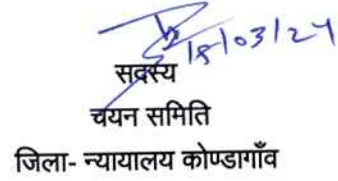 18/03/24
सदस्य
चयन समिति
जिला- न्यायालय कोण्डागाँव